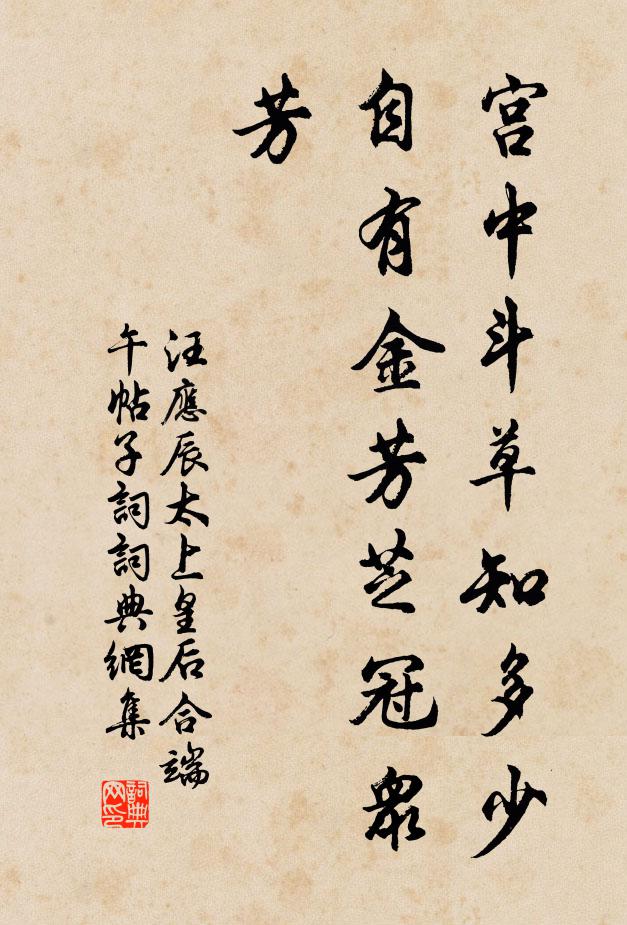 宮中斗草知多少
自有金芳芝冠眾
芳
汪應辰太上皇后合端
午帖子詞詞典網集
詞典
网印